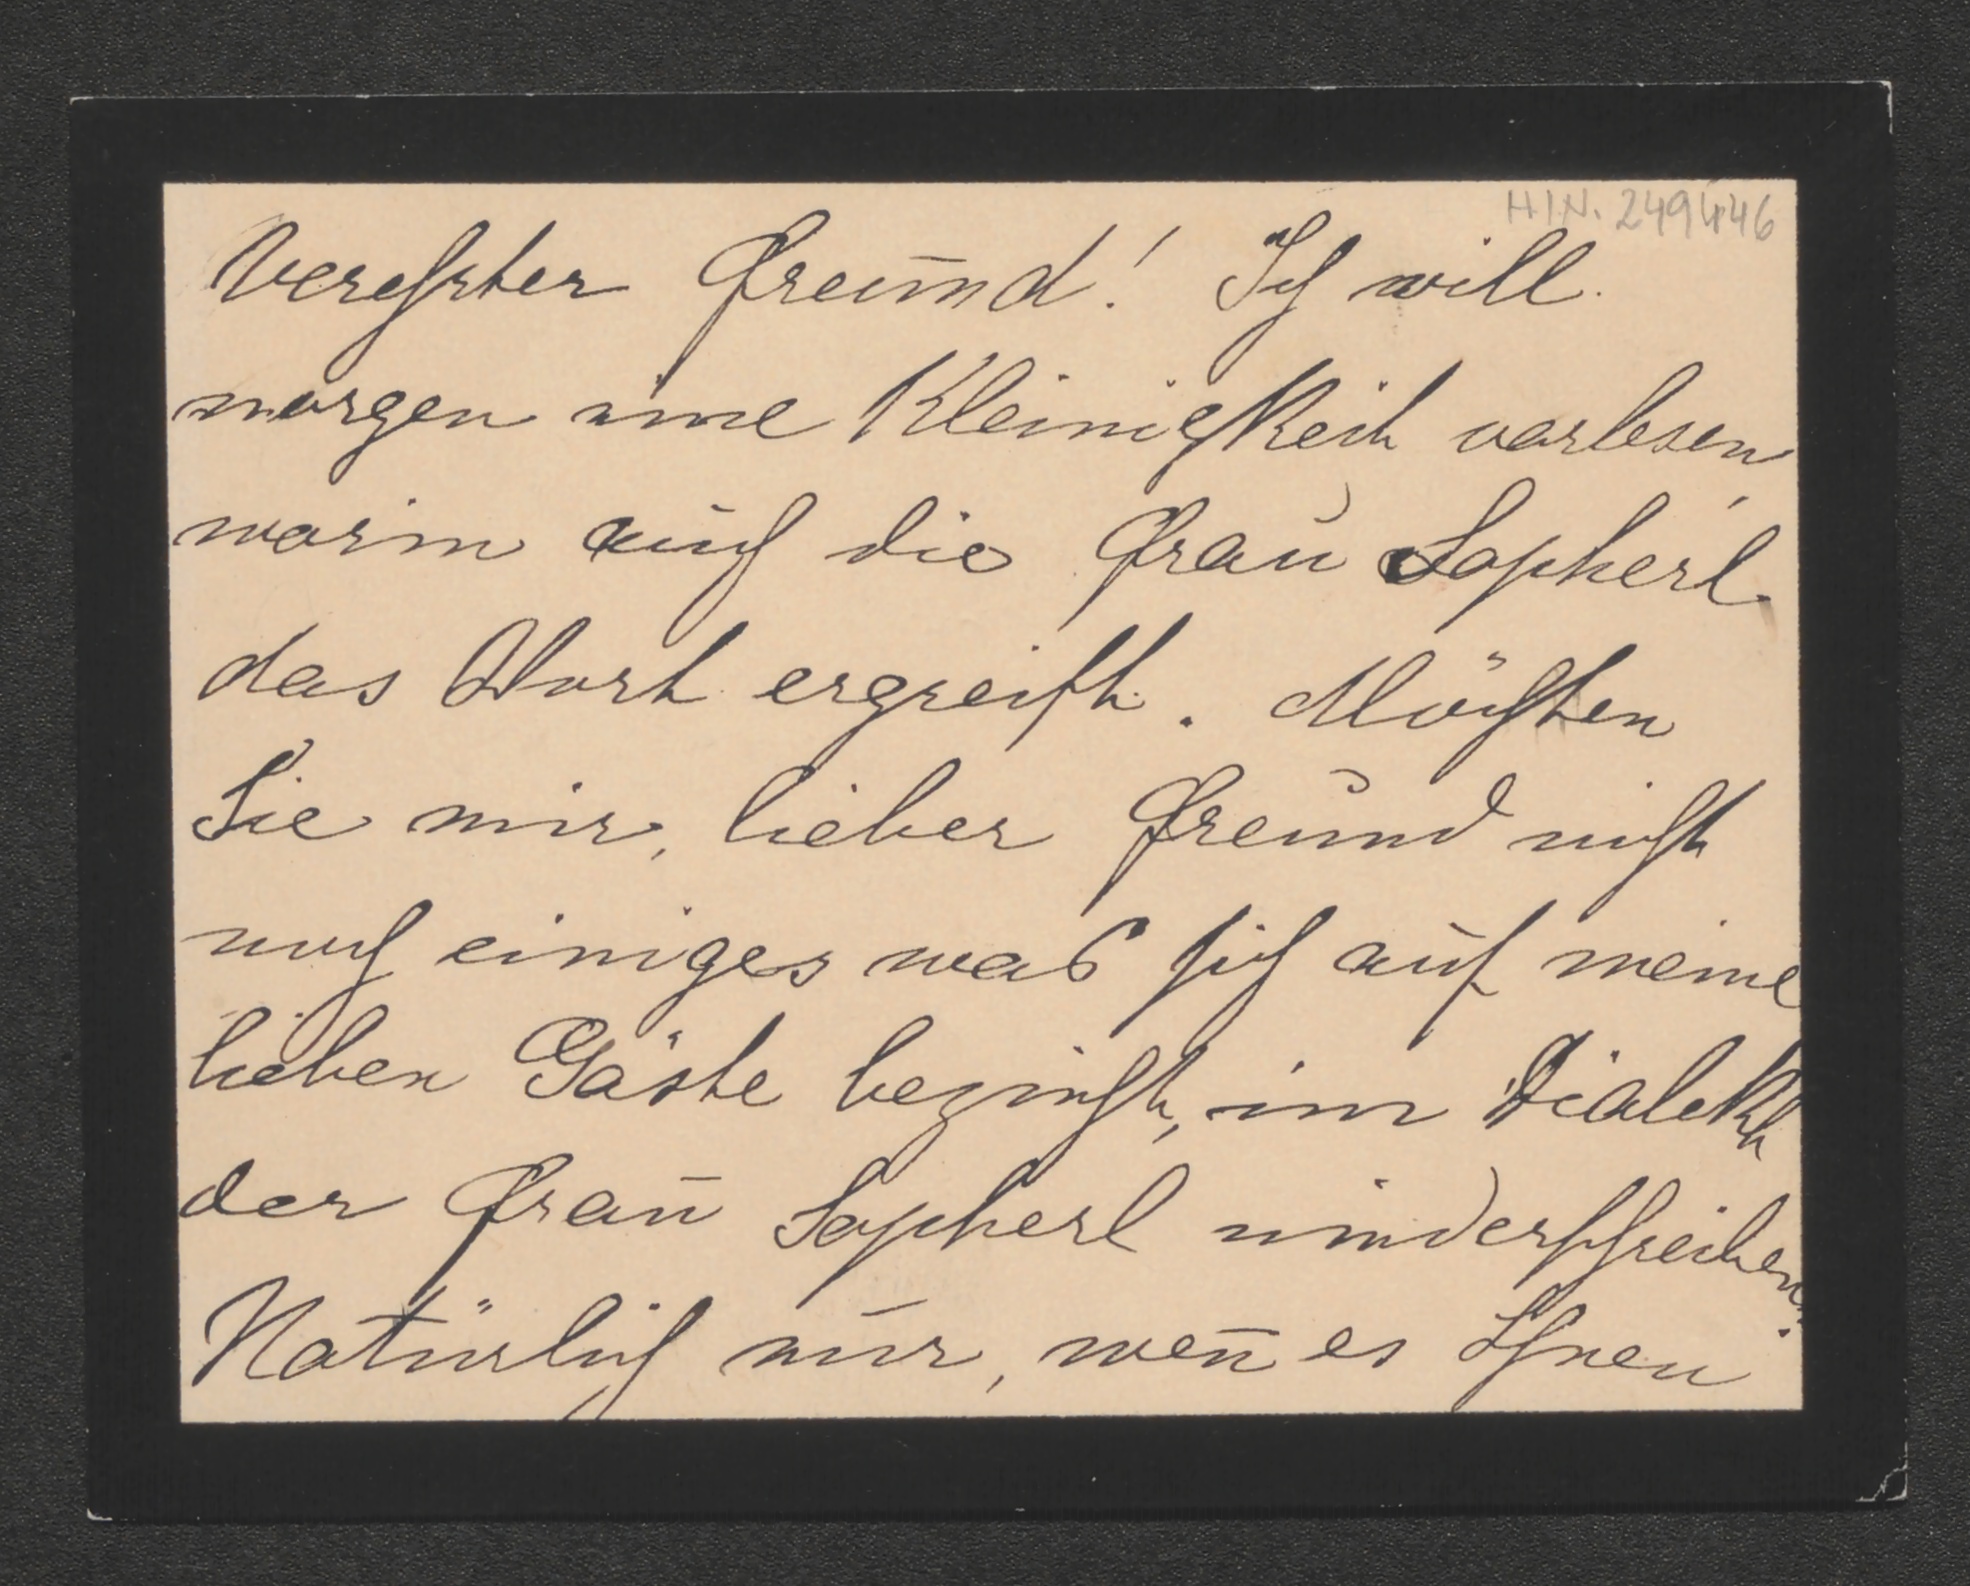 H.I.N. 249446
Verehrter Freund! Ich will
morgen eine Kleinigkeit vorlesen,
worin auch die Frau Sopherl
das Wort ergreift. Möchten
Sie mir, lieber Freund nicht
noch einiges was sich auf meine
lieben Gäste bezieht, im Dialekt
der Frau Sopherl niederschreiben?
Natürlich nur, wen̄ es Ihnen